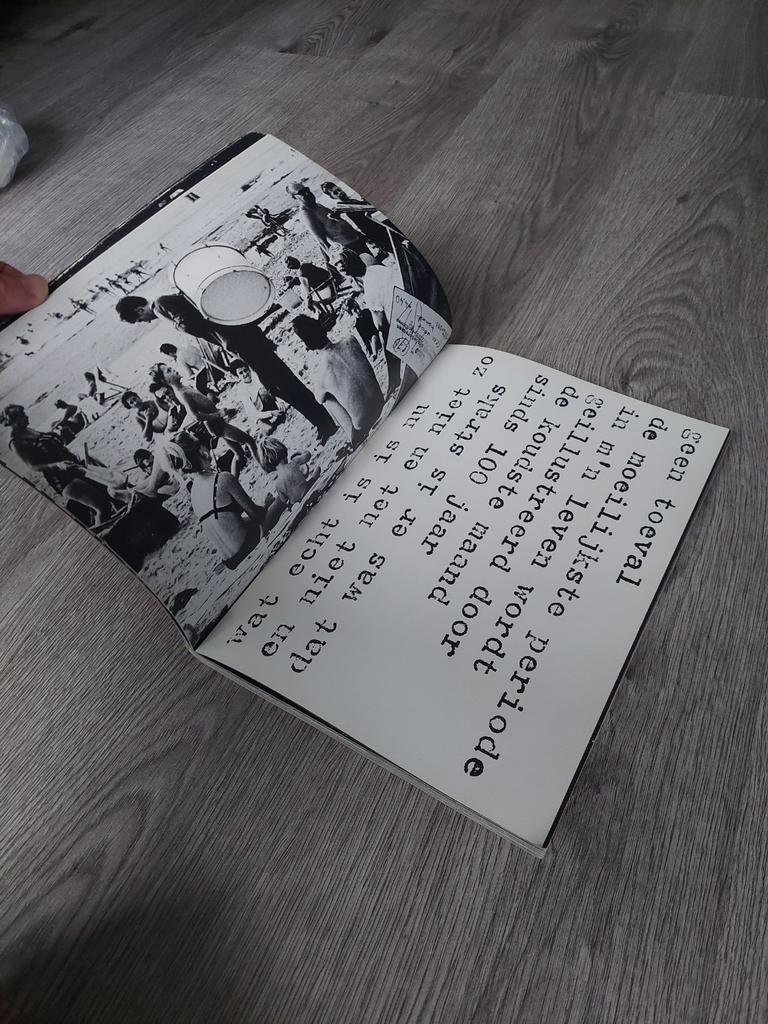 geen toeval
de moeilijkste periode
in m'n leven wordt
geillustreerd door
de koudste maand
sinds 100 jaar
wat echt is is nu
en niet net en niet zo
dat was er is straks